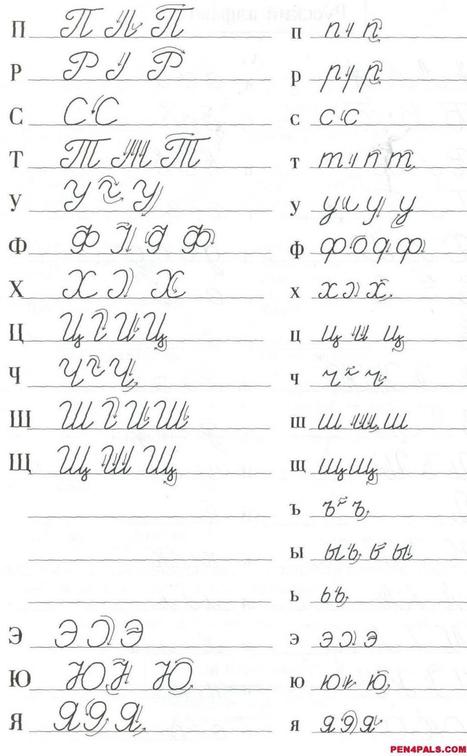 П П П п п п
Р Р Р р р р
С С С с с с
Т Т Т т т т
У У У у у у у
Ф Ф Ф ф ф ф
Х Х Х х х х
Ц Ц Ц ц ц ц
Ч Ч Ч ч ч ч
Ш Ш Ш ш ш ш
Щ Щ Щ щ щ щ
ъ ъ ъ
ы ы ы
ь ь ь
Э Э Э э э э
Ю Ю Ю ю ю ю
Я Я Я я я я
PEN4PALS.COM